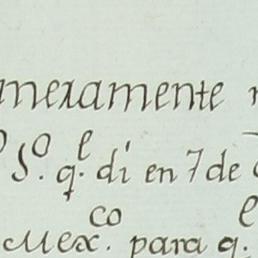 neramente
So. qe. di en 7 de
Mexco. para q.